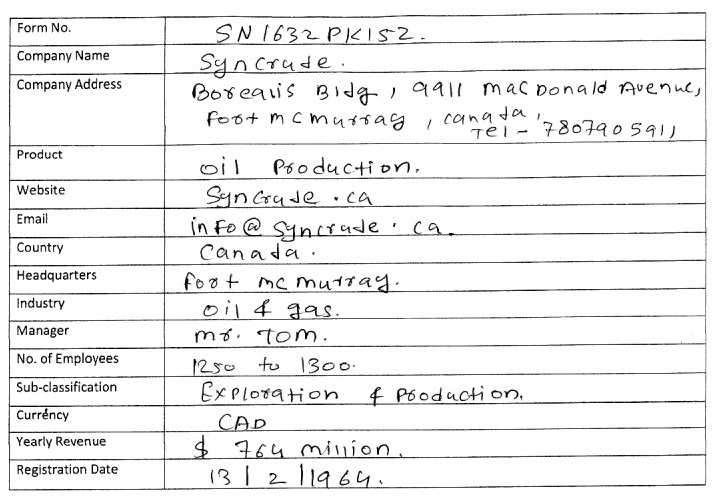 Form No. SN1632PK152.
Company Name Syncrude.
Company Address Borealis Bldg, 9911 MacDonald Avenue,
Foot mcmurray, Canada,
Tel - 7807905911
Product oil Production.
Website Syncrude.ca
Email info@syncrude.ca.
Country Canada.
Headquarters Foot mcmurray.
Industry oil & gas.
Manager mr. Tom.
No. of Employees 1250 to 1300.
Sub-classification Exploration & Production.
Currency CAD
Yearly Revenue $ 764 million.
Registration Date 13/2/1964.